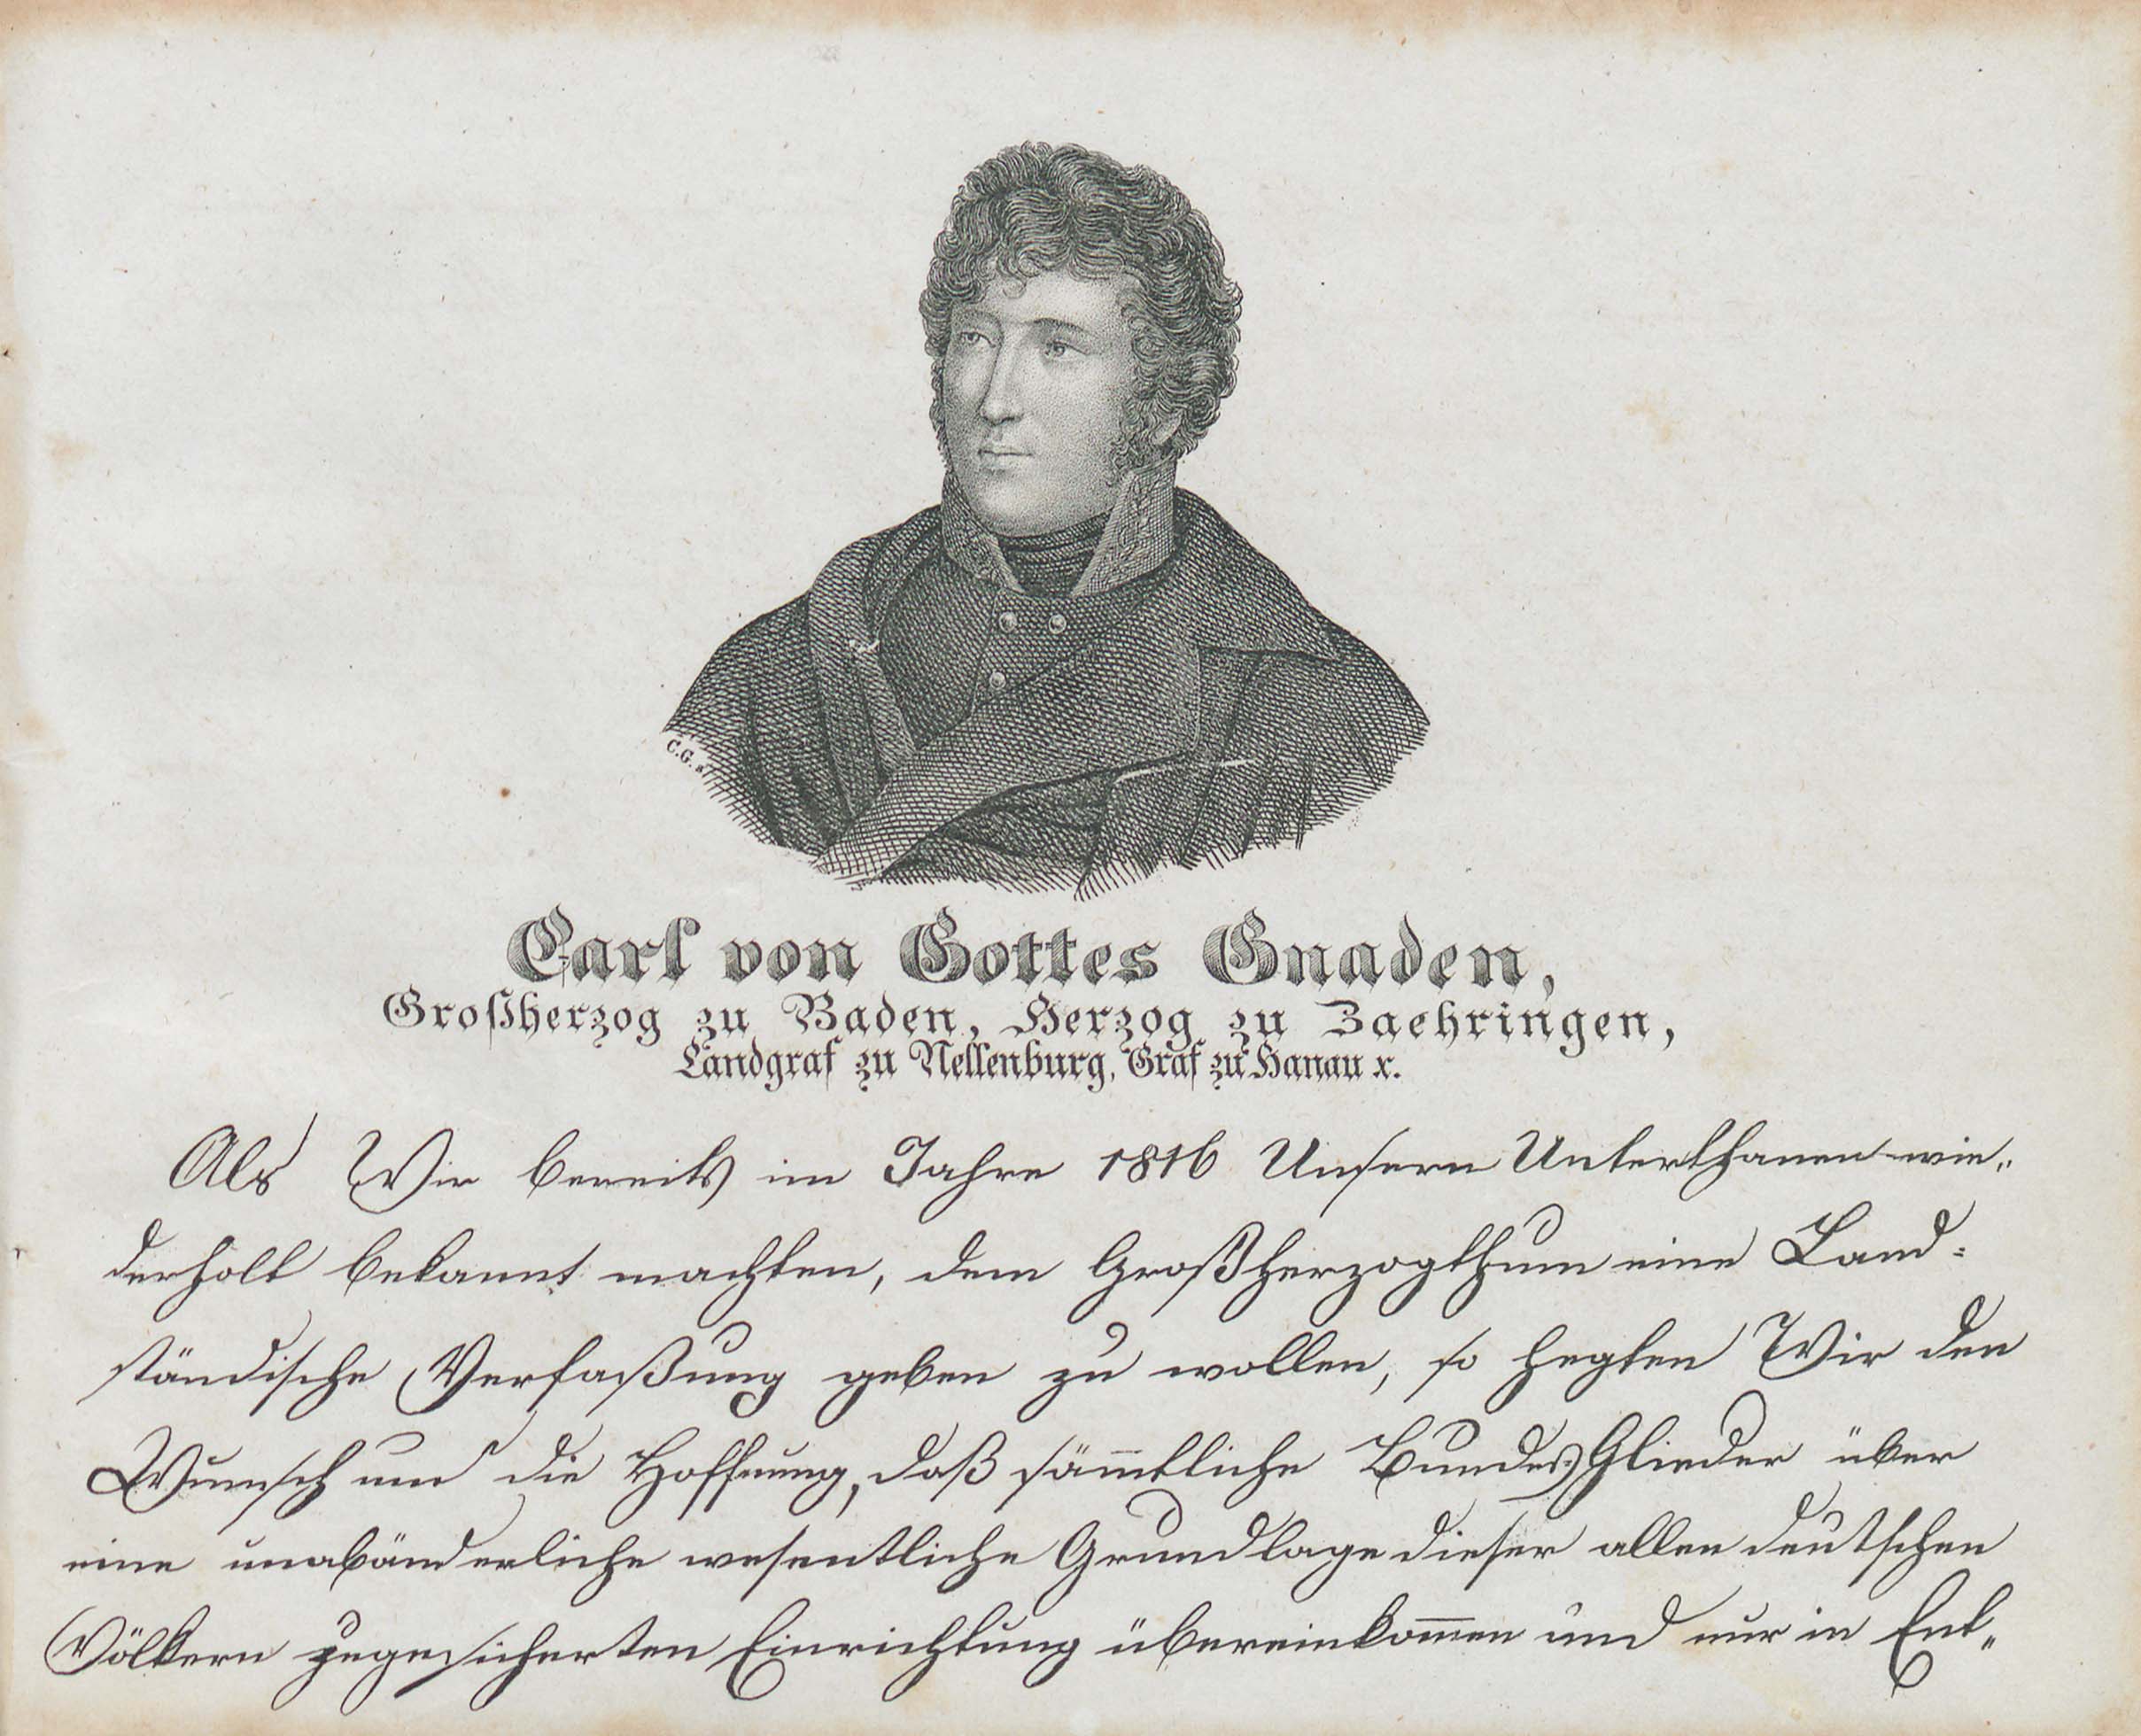 C.G. s.
Carl von Gottes Gnaden,
Großherzog zu Baden, Herzog zu Zaehringen,
Landgraf zu Nellenburg, Graf zu Hanau ꝛc.
Als Wir bereits im Jahre 1816 Unsern Unterthanen wie„
derholt bekannt machten, dem Großherzogthum eine Land=
ständische Verfaßung geben zu wollen, so hegten Wir den
Wunsch und die Hoffnung, daß säm̄tliche Bundes Glieder über
eine unabänderliche wesentliche Grundlage dieser allen deutschen
Völkern zugesicherten Einrichtung übereinkom̄en und nur in Ent„